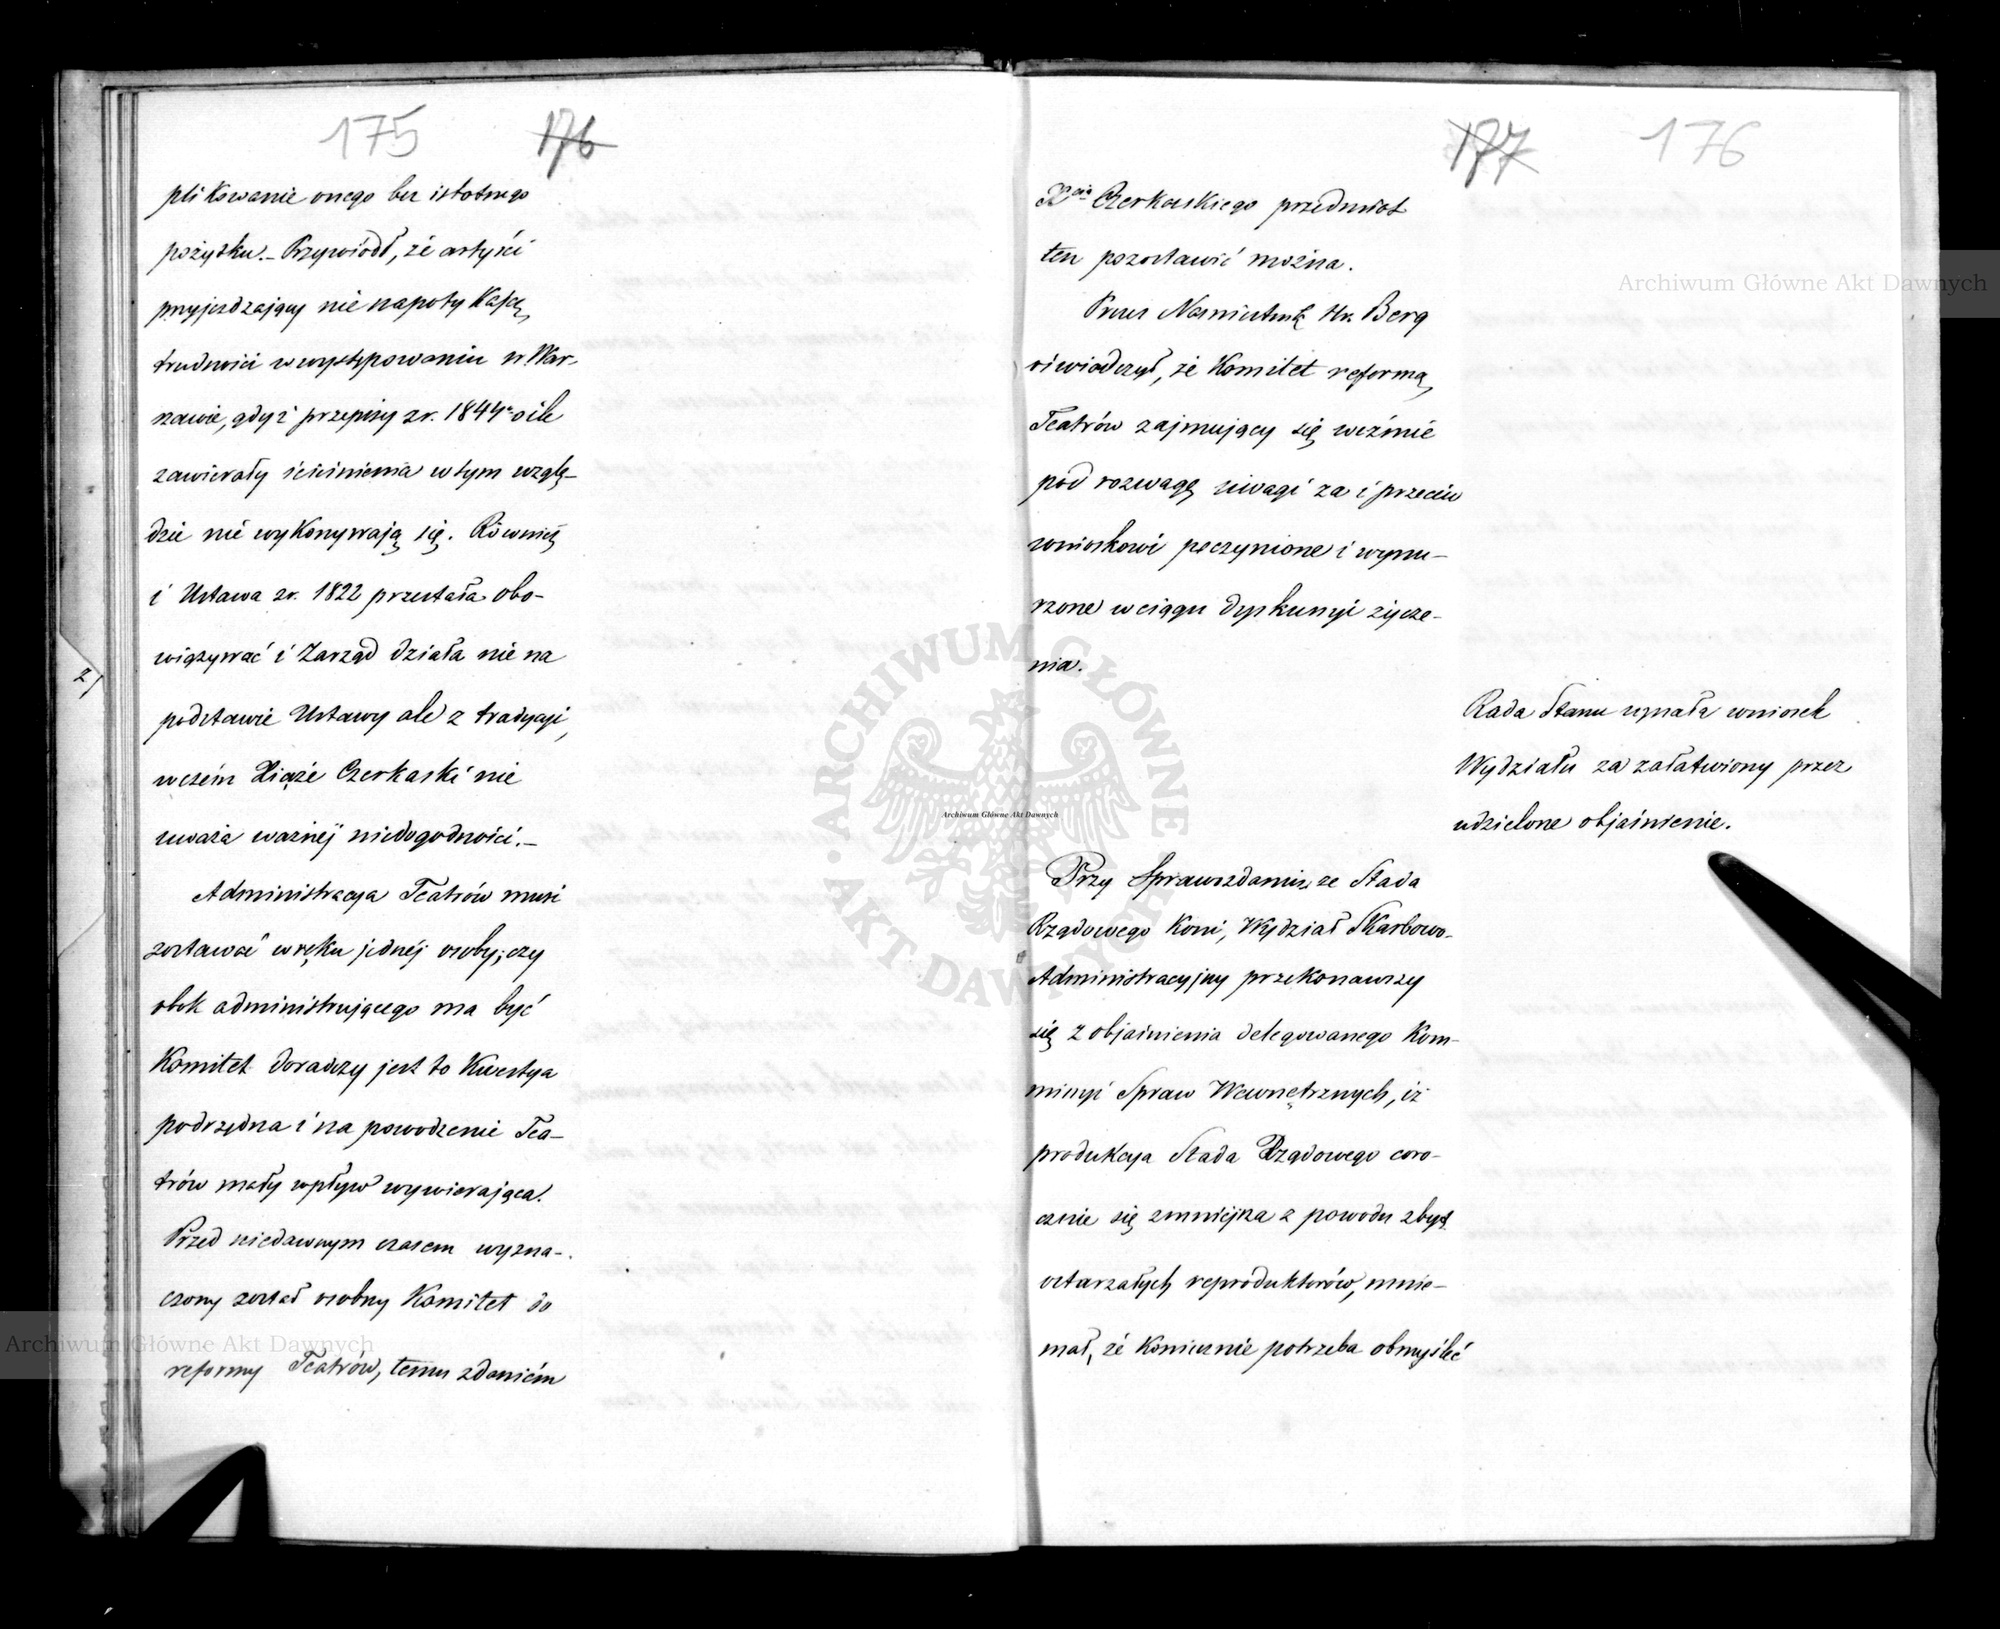 175 176
plikowanie onego bez istotnego
pożytku. – Przywiódł, że artyści
przyjezdzający nie napotykają
trudności w występowaniu w War-
szawie, gdyż przepisy z r. 1844 o ile
zawierały ścieśnienia w tym wzglę-
dzie nie wykonywają się. Również
i Ustawa z r. 1822 przestała obo-
wiązywać i Zarząd działa nie na
podstawie Ustawy ale z tradycyi,
w czém Xiąże Czerkaski nie
uważa ważnéj niedogodności. –
Administracya Teatrów musi
zostawać w ręku jednéj osoby; czy
obok administrującego ma być
Komitet doradczy jest to kwestya
podrzędna i na powodzenie Tea-
trów mały wpływ wywierająca.
Przed niedawnym czasem wyzna-
czony został osobny Komitet do
reformy Teatrów, temu zdaniém
177 176
Xcia Czerkaskiego przedmiot
ten pozostawić można.
Prezes Namiestnik Hr. Berg
oświadczył, że Komitet reformą
Teatrów zajmujący się weźmie
pod rozwagę uwagi za i przeciw
wnioskowi poczynione i wynu-
rzone w ciągu dyskussyi życze-
nia.
Rada Stanu uznała wniosek
Wydziału za załatwiony przez
udzielone objaśnienie.
Przy Sprawozdaniu ze Stada
Rządowego Koni, Wydział Skarbowo-
Administracyjny przekonawszy
się z objaśnienia delegowanego Kom-
missyi Spraw Wewnętrznych, iż
produkcya Stada Rządowego coro-
cznie się zmniejsza z powodu zbyt
ostarzałych reproduktorów, mnie-
mał, że koniecznie potrzeba obmyśleć
2)
Archiwum Główne Akt Dawnych
Archiwum Główne Akt Dawnych
Archiwum Główne Akt Dawnych
ARCHIWUM GŁÓWNE · AKT DAWNYCH ·